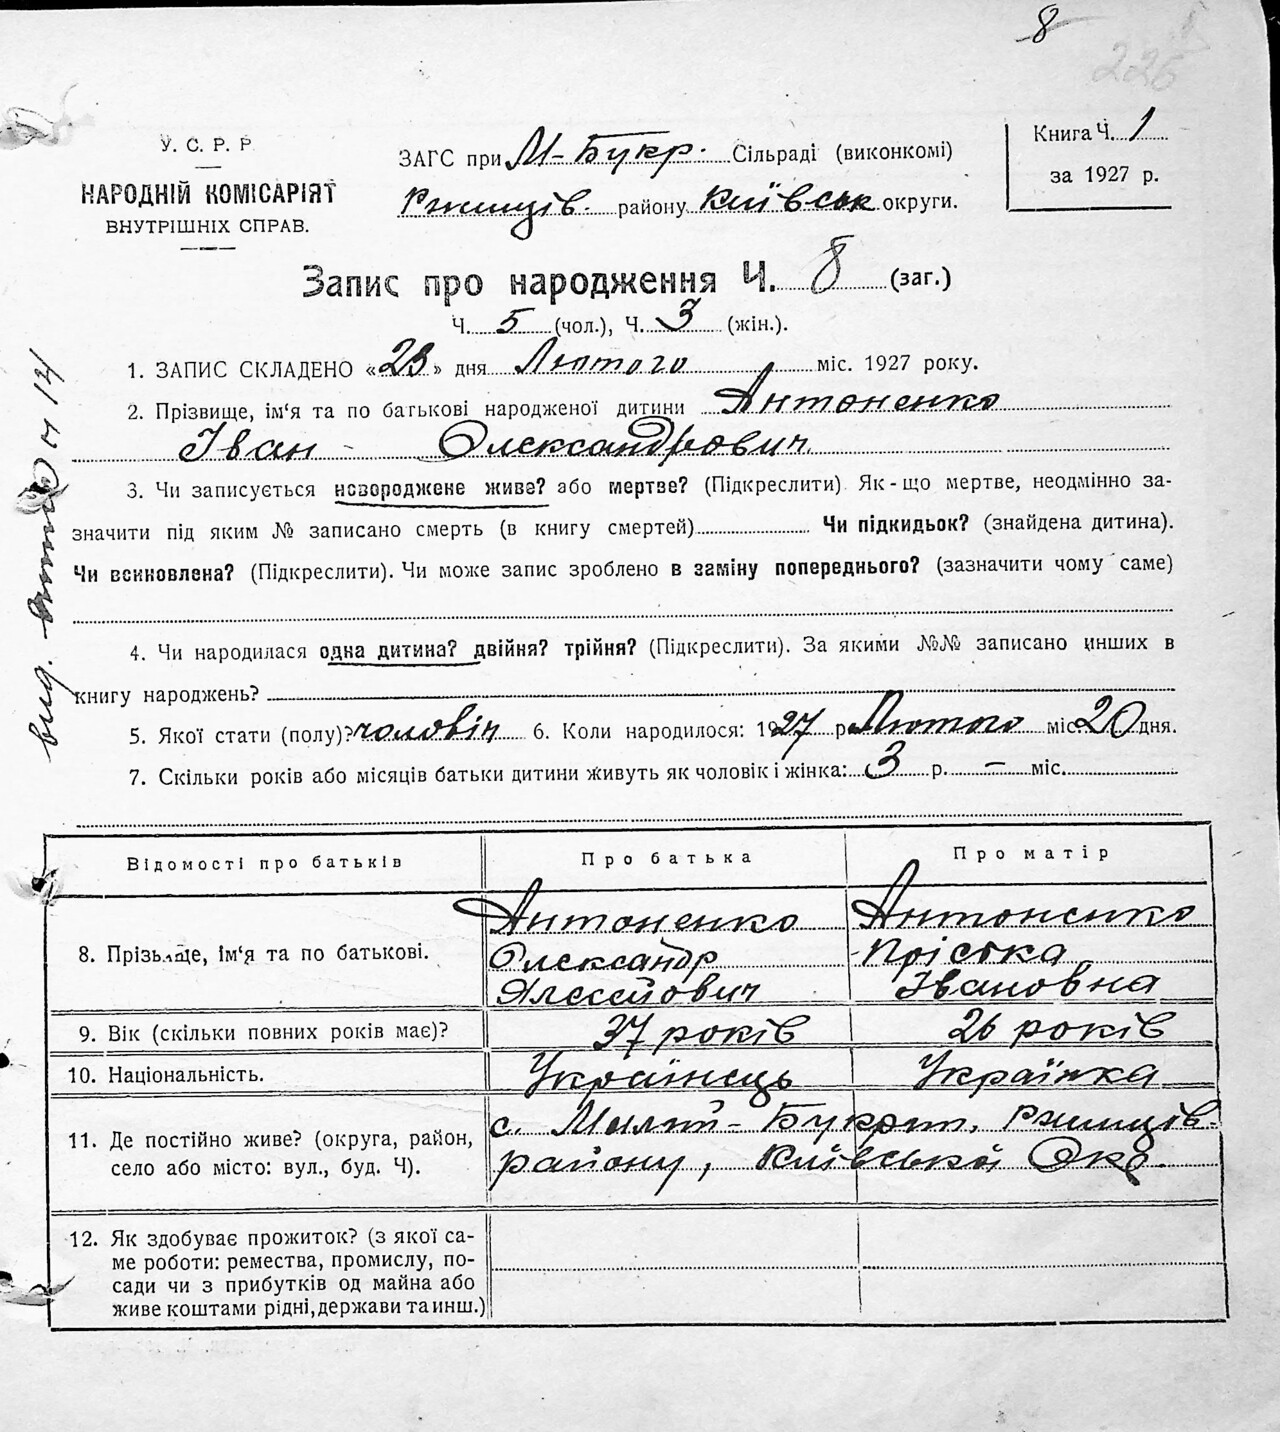 8
226
У. С. Р. Р.
НАРОДНІЙ КОМІСАРІЯТ
ВНУТРІШНІХ СПРАВ.
ЗАГС при М-Букр. Сільраді (виконкомі)
Ржищів. району Київськ округи.
Книга Ч. 1
за 1927 р.
Запис про народження Ч. 8 (заг.)
Ч. 5 (чол.), Ч. 3 (жін.).
1. ЗАПИС СКЛАДЕНО «23» дня Лютого міс. 1927 року.
2. Прізвище, ім'я та по батькові народженої дитини Антоненко
Іван - Олександрович
3. Чи записується новороджене живе? або мертве? (Підкреслити) Як-що мертве, неодмінно за-
значити під яким № записано смерть (в книгу смертей) Чи підкидьок? (знайдена дитина).
Чи всиновлена? (Підкреслити). Чи може запис зроблено в заміну попереднього? (зазначити чому саме)
4. Чи народилася одна дитина? двійня? трійня? (Підкреслити). За якими №№ записано инших в
книгу народжень?
5. Якої стати (полу)? чоловіч 6. Коли народилося: 1927 р Лютого міс. 20 дня.
7. Скільки років або місяців батьки дитини живуть як чоловік і жінка: 3 р. — міс.
вид.
Відомості про батьків
Про батька
Про матір
8. Прізвище, ім'я та по батькові.
Антоненко
Олександр
Алексійович
Антоненко
Пріська
Івановна
9. Вік (скільки повних років має)?
37 років
26 років
10. Національність.
Українець
Українка
11. Де постійно живе? (округа, район,
село або місто: вул., буд. Ч).
с. Малий-Букрин, Ржищів.
району, Київської Окр.
12. Як здобуває прожиток? (з якої са-
ме роботи: ремества, промислу, по-
сади чи з прибутків од майна або
живе коштами рідні, держави та инш.)